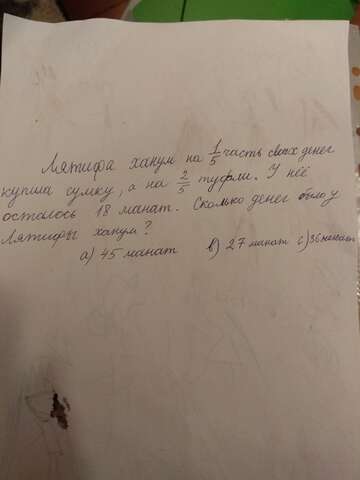 Лятифа ханум на 1/5 часть своих денег
купила сумку, а на 2/5 туфли. У неё
осталось 18 манат. Сколько денег было у
Лятифы ханум?
а) 45 манат b) 27 манат c) 36 манат